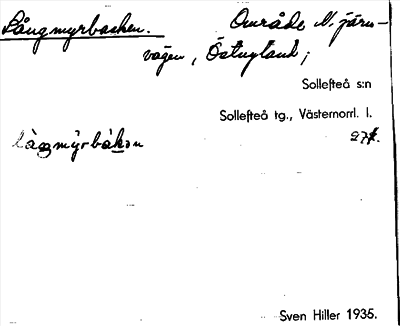 Långmyrbacken. Område N. järn-
vägen, Östnyland;
Sollefteå s:n
Sollefteå tg., Västernorrl. l.
làŋmýrbàkən 27k.
Sven Hiller 1935.